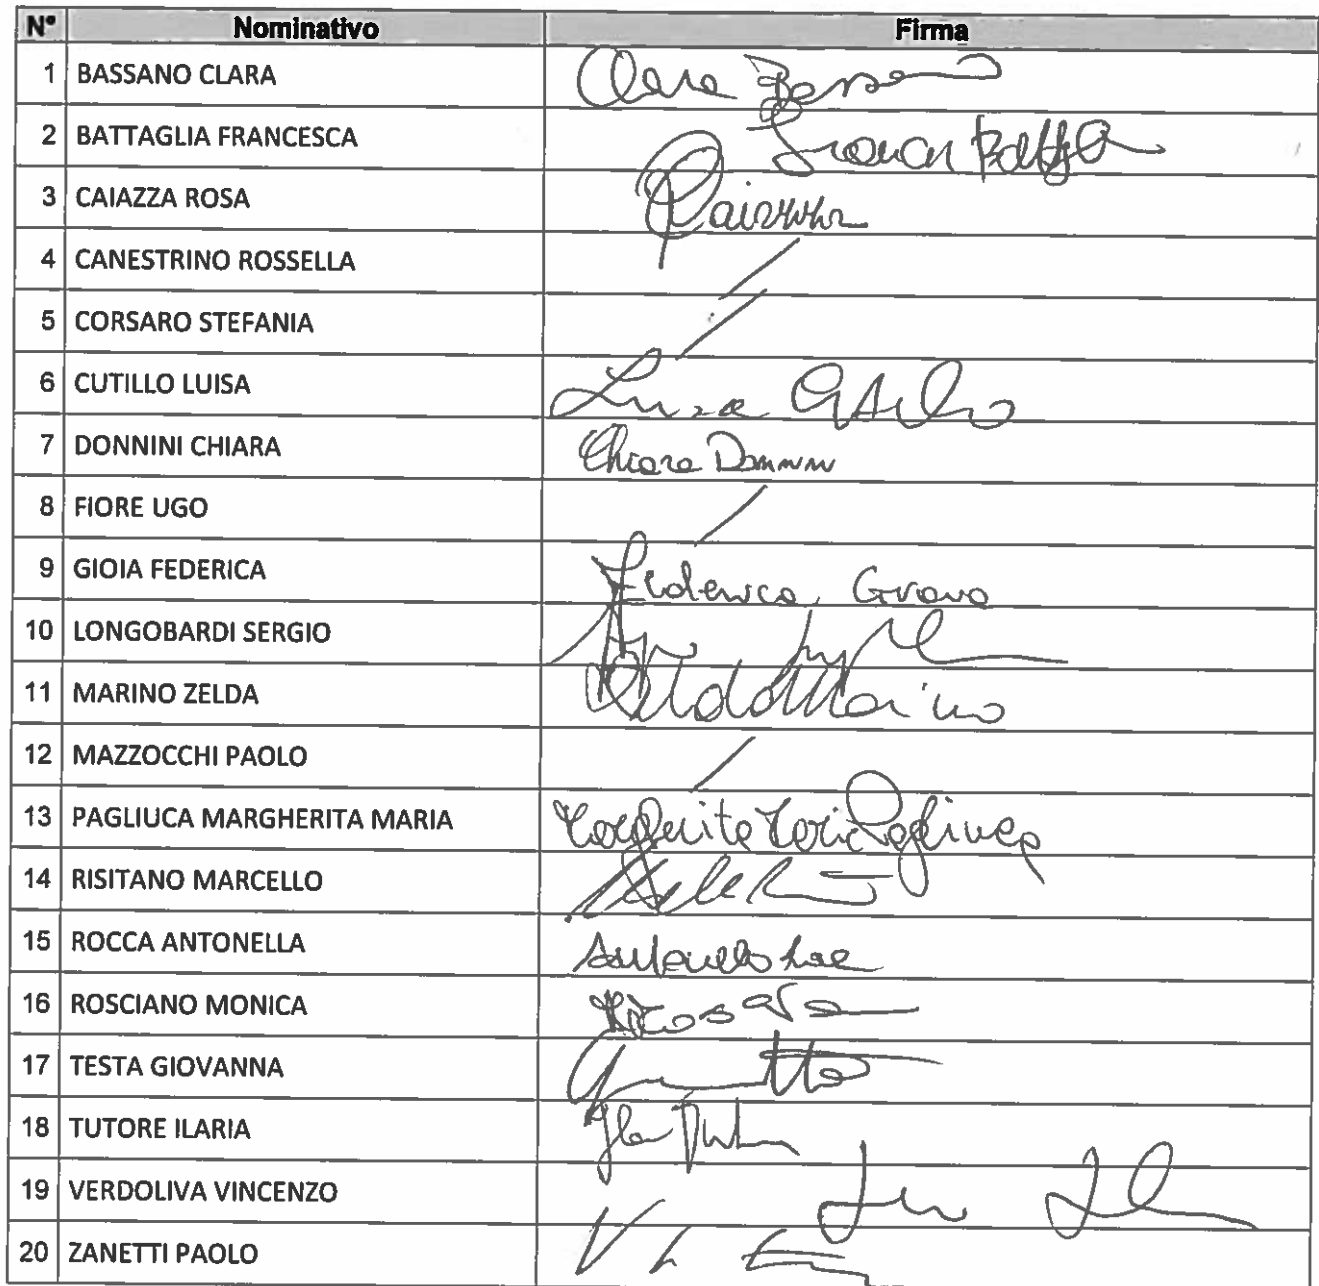 N° Nominativo Firma
1 BASSANO CLARA Clara Bassano
2 BATTAGLIA FRANCESCA
3 CAIAZZA ROSA
4 CANESTRINO ROSSELLA
5 CORSARO STEFANIA
6 CUTILLO LUISA Luisa Cutillo
7 DONNINI CHIARA Chiara Donnini
8 FIORE UGO
9 GIOIA FEDERICA Federica Gioia
10 LONGOBARDI SERGIO
11 MARINO ZELDA Zelda Marino
12 MAZZOCCHI PAOLO
13 PAGLIUCA MARGHERITA MARIA Margherita Maria Pagliuca
14 RISITANO MARCELLO
15 ROCCA ANTONELLA Antonella Rocca
16 ROSCIANO MONICA
17 TESTA GIOVANNA
18 TUTORE ILARIA
19 VERDOLIVA VINCENZO
20 ZANETTI PAOLO